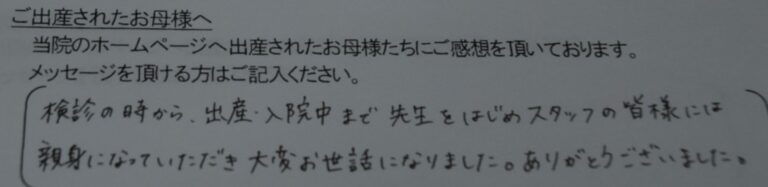 ご出産されたお母様へ
当院のホームページへ出産されたお母様たちにご感想を頂いております。
メッセージを頂ける方はご記入ください。
検診の時から、出産・入院中まで先生をはじめスタッフの皆様には
親身になっていただき大変お世話になりました。ありがとうございました。